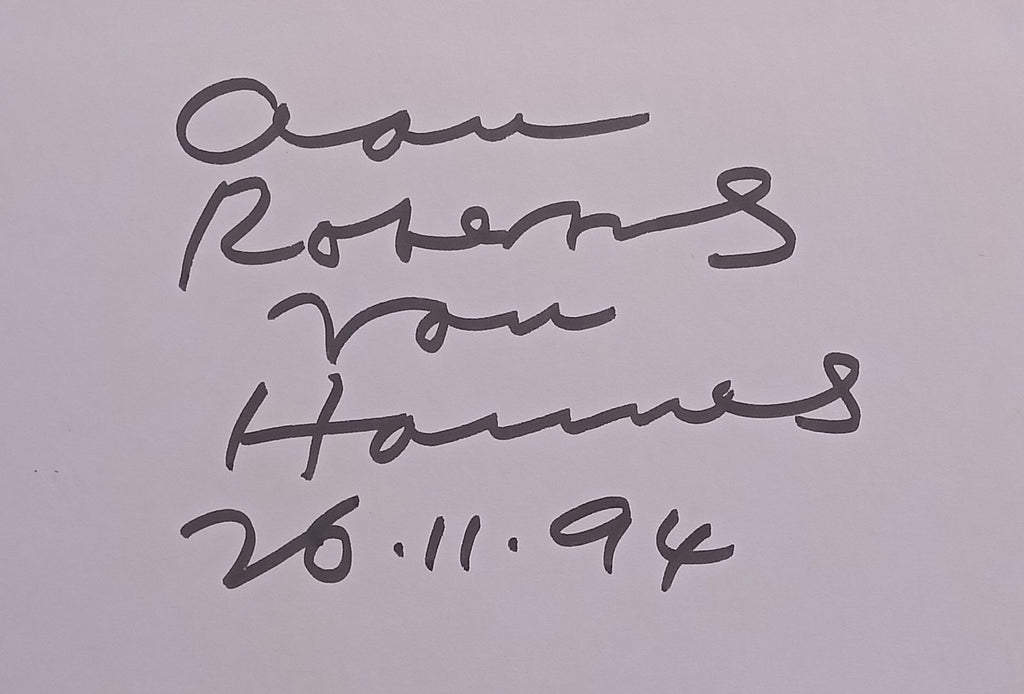 Aan
Roberts
van
Hannes
26.11.94